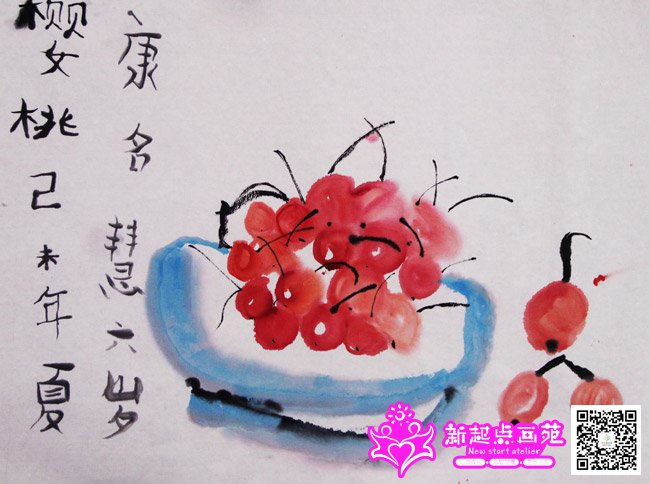 樱桃己未年夏
康名慧六岁
新起点画苑
New start atelier